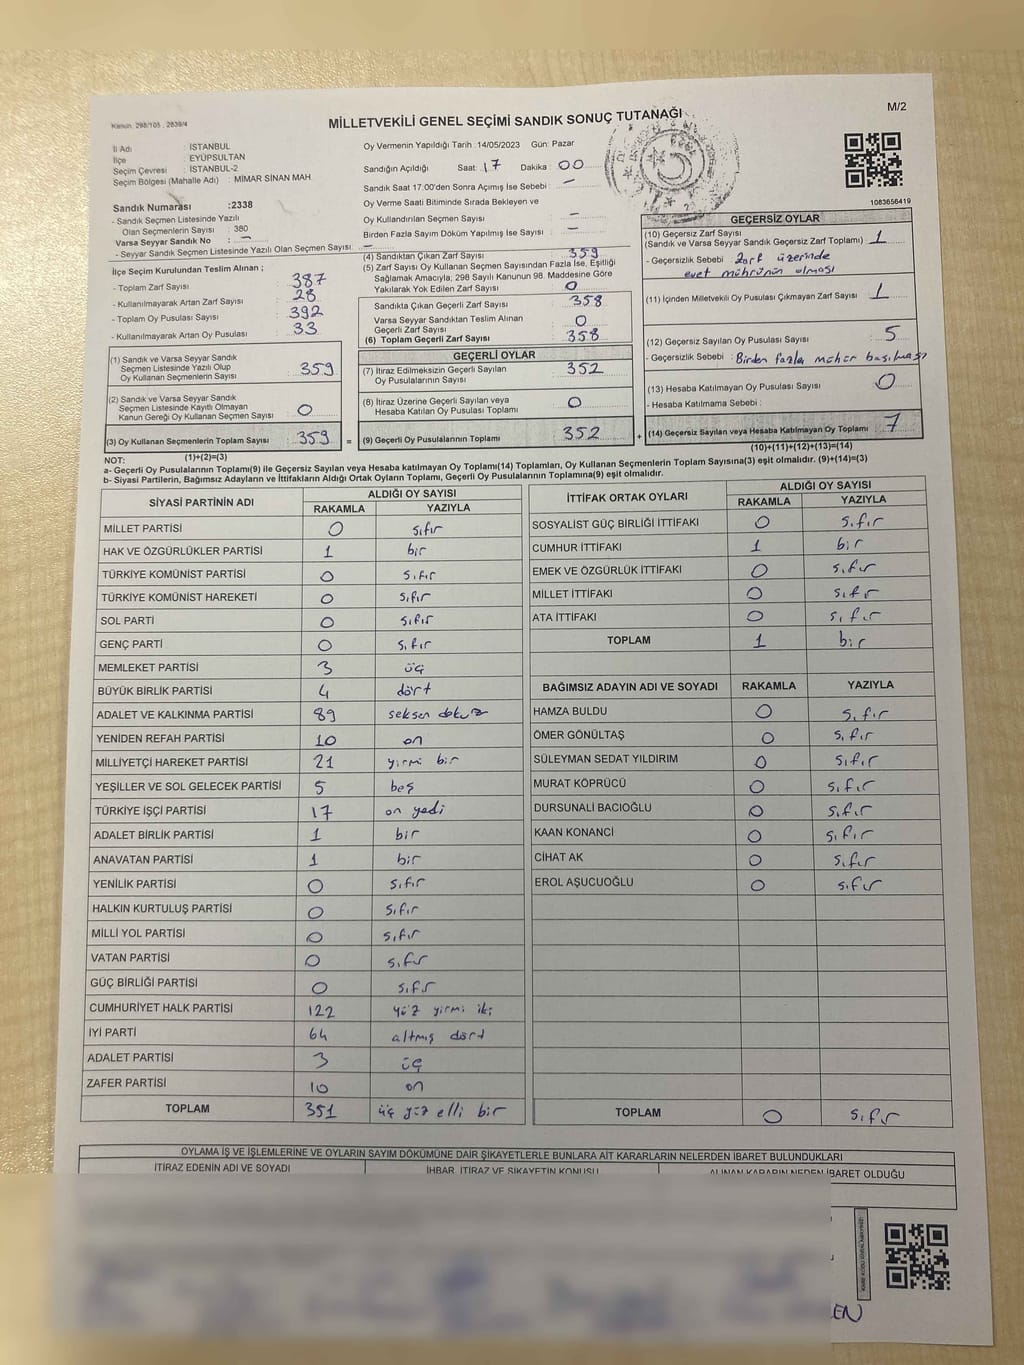 M/2
Kanun: 298/105 , 2839/4
MİLLETVEKİLİ GENEL SEÇİMİ SANDIK SONUÇ TUTANAĞI
İl Adı : İSTANBUL
İlçe : EYÜPSULTAN
Seçim Çevresi : İSTANBUL-2
Seçim Bölgesi (Mahalle Adı) : MİMAR SİNAN MAH.
Sandık Numarası :2338
- Sandık Seçmen Listesinde Yazılı
Olan Seçmenlerin Sayısı : 380
Varsa Seyyar Sandık No : –
- Seyyar Sandık Seçmen Listesinde Yazılı Olan Seçmen Sayısı: –
İlçe Seçim Kurulundan Teslim Alınan ;
- Toplam Zarf Sayısı : 387
- Kullanılmayarak Artan Zarf Sayısı : 28
- Toplam Oy Pusulası Sayısı : 392
- Kullanılmayarak Artan Oy Pusulası : 33
(1) Sandık ve Varsa Seyyar Sandık
Seçmen Listesinde Yazılı Olup
Oy Kullanan Seçmenlerin Sayısı : 359
(2) Sandık ve Varsa Seyyar Sandık
Seçmen Listesinde Kayıtlı Olmayan
Kanun Gereği Oy Kullanan Seçmen Sayısı : 0
(3) Oy Kullanan Seçmenlerin Toplam Sayısı : 359 =
(1)+(2)=(3)
Oy Vermenin Yapıldığı Tarih : 14/05/2023 Gün: Pazar
Sandığın Açıldığı Saat: 17 Dakika : 00
Sandık Saat 17.00'den Sonra Açımış İse Sebebi : –
Oy Verme Saati Bitiminde Sırada Bekleyen ve
Oy Kullandırılan Seçmen Sayısı : –
Birden Fazla Sayım Döküm Yapılmış İse Sayısı : –
(4) Sandıktan Çıkan Zarf Sayısı : 359
(5) Zarf Sayısı Oy Kullanan Seçmen Sayısından Fazla İse, Eşitliği
Sağlamak Amacıyla; 298 Sayılı Kanunun 98. Maddesine Göre
Yakılarak Yok Edilen Zarf Sayısı : 0
Sandıkta Çıkan Geçerli Zarf Sayısı : 358
Varsa Seyyar Sandıktan Teslim Alınan
Geçerli Zarf Sayısı : 0
(6) Toplam Geçerli Zarf Sayısı : 358
GEÇERLİ OYLAR
(7) İtiraz Edilmeksizin Geçerli Sayılan
Oy Pusulalarının Sayısı : 352
(8) İtiraz Üzerine Geçerli Sayılan veya
Hesaba Katılan Oy Pusulası Toplamı : 0
(9) Geçerli Oy Pusulalarının Toplamı : 352 +
1083656419
GEÇERSİZ OYLAR
(10) Geçersiz Zarf Sayısı
(Sandık ve Varsa Seyyar Sandık Geçersiz Zarf Toplamı) : 1
- Geçersizlik Sebebi : Zarf üzerinde
evet mührünün olması
(11) İçinden Milletvekili Oy Pusulası Çıkmayan Zarf Sayısı : 1
(12) Geçersiz Sayılan Oy Pusulası Sayısı : 5
- Geçersizlik Sebebi : Birden fazla mühür basılması
(13) Hesaba Katılmayan Oy Pusulası Sayısı : 0
- Hesaba Katılmama Sebebi :
(14) Geçersiz Sayılan veya Hesaba Katılmayan Oy Toplamı : 7
(10)+(11)+(12)+(13)=(14)
NOT:
a- Geçerli Oy Pusulalarının Toplamı(9) ile Geçersiz Sayılan veya Hesaba katılmayan Oy Toplamı(14) Toplamları, Oy Kullanan Seçmenlerin Toplam Sayısına(3) eşit olmalıdır. (9)+(14)=(3)
b- Siyasi Partilerin, Bağımsız Adayların ve İttifakların Aldığı Ortak Oyların Toplamı, Geçerli Oy Pusulalarının Toplamına(9) eşit olmalıdır.
SİYASİ PARTİNİN ADI ALDIĞI OY SAYISI
RAKAMLA YAZIYLA
MİLLET PARTİSİ 0 sıfır
HAK VE ÖZGÜRLÜKLER PARTİSİ 1 bir
TÜRKİYE KOMÜNİST PARTİSİ 0 sıfır
TÜRKİYE KOMÜNİST HAREKETİ 0 sıfır
SOL PARTİ 0 sıfır
GENÇ PARTİ 0 sıfır
MEMLEKET PARTİSİ 3 üç
BÜYÜK BİRLİK PARTİSİ 4 dört
ADALET VE KALKINMA PARTİSİ 89 seksen dokuz
YENİDEN REFAH PARTİSİ 10 on
MİLLİYETÇİ HAREKET PARTİSİ 21 yirmi bir
YEŞİLLER VE SOL GELECEK PARTİSİ 5 beş
TÜRKİYE İŞÇİ PARTİSİ 17 on yedi
ADALET BİRLİK PARTİSİ 1 bir
ANAVATAN PARTİSİ 1 bir
YENİLİK PARTİSİ 0 sıfır
HALKIN KURTULUŞ PARTİSİ 0 sıfır
MİLLİ YOL PARTİSİ 0 sıfır
VATAN PARTİSİ 0 sıfır
GÜÇ BİRLİĞİ PARTİSİ 0 sıfır
CUMHURİYET HALK PARTİSİ 122 yüz yirmi iki
İYİ PARTİ 64 altmış dört
ADALET PARTİSİ 3 üç
ZAFER PARTİSİ 10 on
TOPLAM 351 üç yüz elli bir
İTTİFAK ORTAK OYLARI ALDIĞI OY SAYISI
RAKAMLA YAZIYLA
SOSYALİST GÜÇ BİRLİĞİ İTTİFAKI 0 sıfır
CUMHUR İTTİFAKI 1 bir
EMEK VE ÖZGÜRLÜK İTTİFAKI 0 sıfır
MİLLET İTTİFAKI 0 sıfır
ATA İTTİFAKI 0 sıfır
TOPLAM 1 bir
BAĞIMSIZ ADAYIN ADI VE SOYADI RAKAMLA YAZIYLA
HAMZA BULDU 0 sıfır
ÖMER GÖNÜLTAŞ 0 sıfır
SÜLEYMAN SEDAT YILDIRIM 0 sıfır
MURAT KÖPRÜCÜ 0 sıfır
DURSUNALİ BACIOĞLU 0 sıfır
KAAN KONANCİ 0 sıfır
CİHAT AK 0 sıfır
EROL AŞUCUOĞLU 0 sıfır
TOPLAM 0 sıfır
OYLAMA İŞ VE İŞLEMLERİNE VE OYLARIN SAYIM DÖKÜMÜNE DAİR ŞİKAYETLERLE BUNLARA AİT KARARLARIN NELERDEN İBARET BULUNDUKLARI
İTİRAZ EDENİN ADI VE SOYADI İHBAR, İTİRAZ VE ŞİKAYETİN KONUSU ALINAN KARARIN NEDEN İBARET OLDUĞU